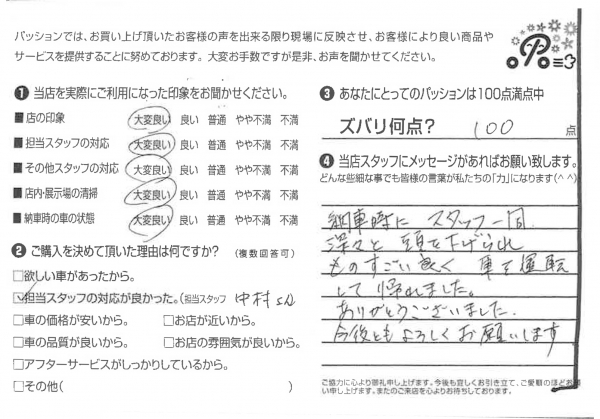 パッションでは、お買い上げ頂いたお客様の声を出来る限り現場に反映させ、お客様により良い商品や
サービスを提供することに努めております。大変お手数ですが是非、お声を聞かせてください。
❶ 当店を実際にご利用になった印象をお聞かせください。
■店の印象 大変良い 良い 普通 やや不満 不満
■担当スタッフの対応 大変良い 良い 普通 やや不満 不満
■その他スタッフの対応 大変良い 良い 普通 やや不満 不満
■店内・展示場の清掃 大変良い 良い 普通 やや不満 不満
■納車時の車の状態 大変良い 良い 普通 やや不満 不満
❷ ご購入を決めて頂いた理由は何ですか? (複数回答可)
□欲しい車があったから。
☑担当スタッフの対応が良かった。(担当スタッフ 中村さん
□車の価格が安いから。 □お店が近いから。
□車の品質が良いから。 □お店の雰囲気が良いから。
□アフターサービスがしっかりしているから。
□その他( )
❸ あなたにとってのパッションは100点満点中
ズバリ何点? 100 点
❹ 当店スタッフにメッセージがあればお願い致します。
どんな些細な事でも皆様の言葉が私たちの「力」になります(^^)
納車時に スタッフ一同
深々と 頭を下げられ
ものすごい良く 車を運転
して 帰れました。
ありがとうございました。
今後ともよろしくお願いします
ご協力に心より御礼申し上げます。今後も宜しくお引き立て、ご愛顧のほどお願
い申し上げます。またのご来店を心よりお待ちしております。